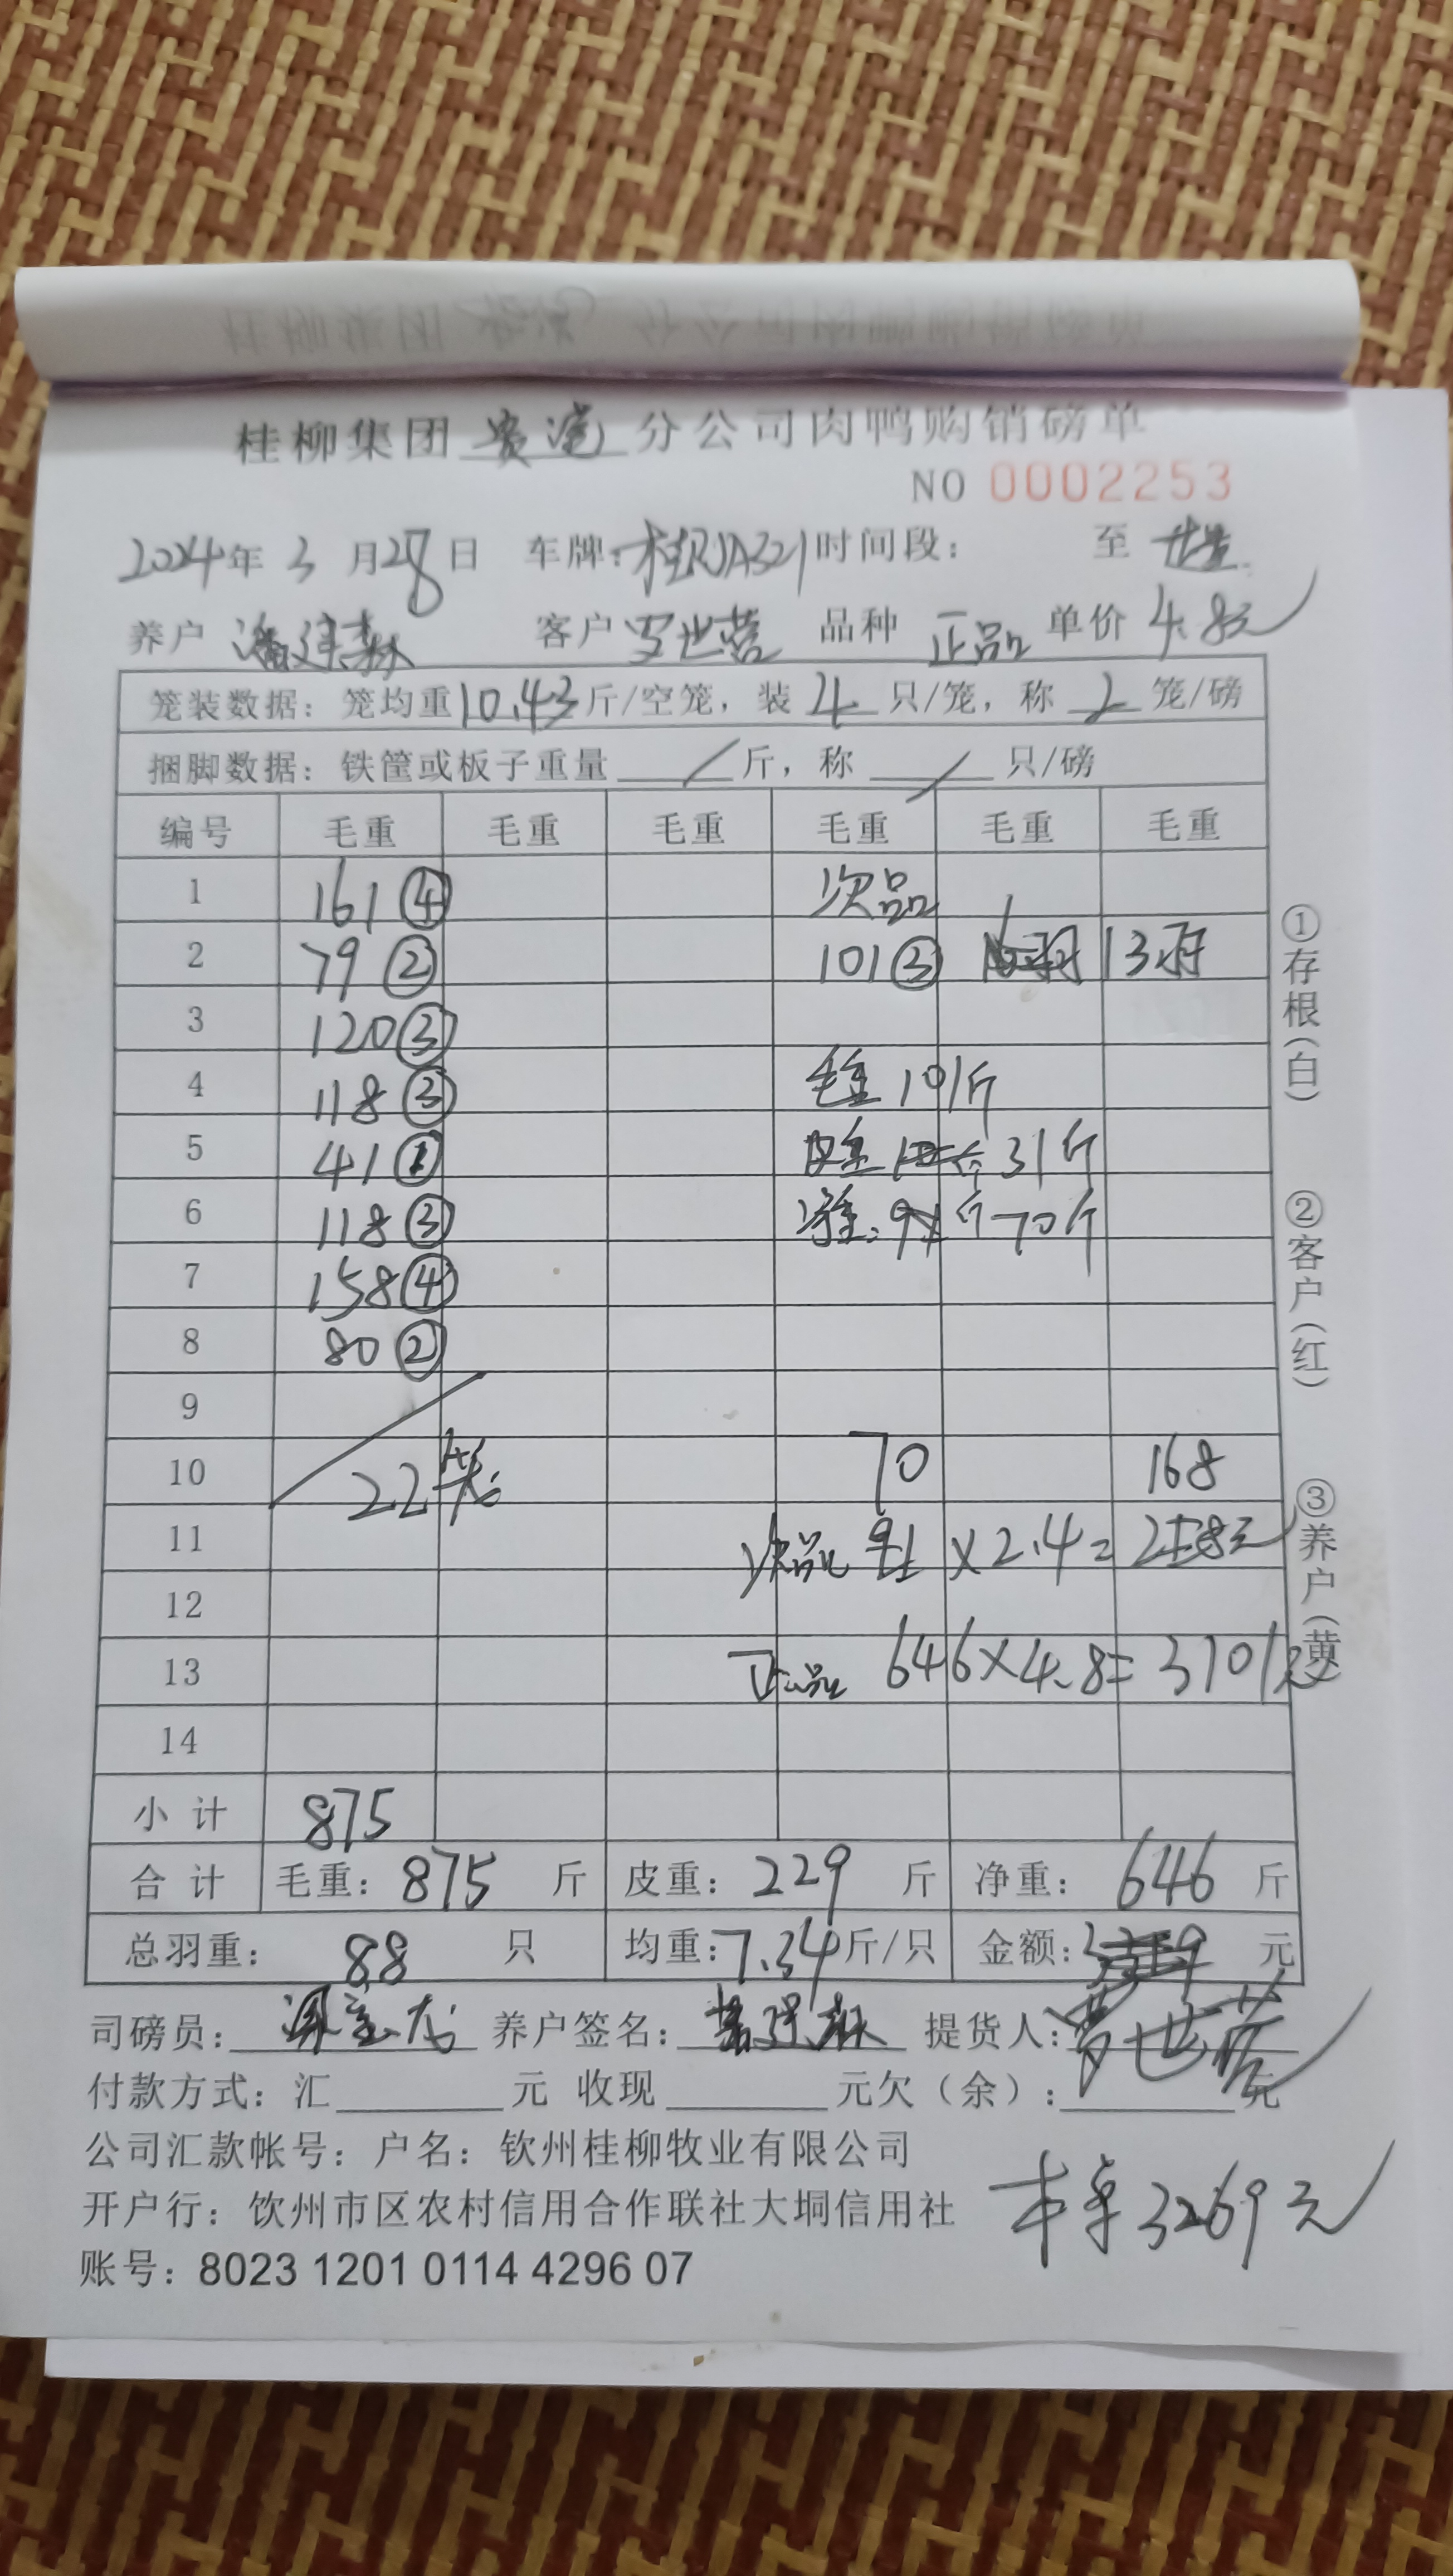 桂柳集团 贵港 分公司肉鸭购销磅单
NO 0002253
2024年 3 月28日 车牌: 时间段: 至
养户 潘建森 客户 罗世营 品种 正品 单价 4.8元
笼装数据: 笼均重10.43斤/空笼, 装 4 只/笼, 称 2 笼/磅
捆脚数据: 铁筐或板子重量 / 斤, 称 / 只/磅
编号 毛重 毛重 毛重 毛重 毛重 毛重
1 161④ 次品
2 79② 101③ 13羽
3 120③
4 118③ 毛重101斤
5 41① 皮重 31斤
6 118③ 净重: 70斤
7 158④
8 80②
9
10 22笼 70 168
11 次品 ×2.4=
12
13 正品 646×4.8=3101元
14
小计 875
合计 毛重: 875 斤 皮重: 229 斤 净重: 646 斤
总羽重: 88 只 均重:7.34斤/只 金额: 元
司磅员: 养户签名: 提货人:罗世营
付款方式: 汇 元 收现 元欠(余): 元
公司汇款帐号: 户名: 钦州桂柳牧业有限公司
开户行: 饮州市区农村信用合作联社大垌信用社
账号: 8023 1201 0114 4296 07
本车3269元
①存根(白)
②客户(红)
③养户(黄)